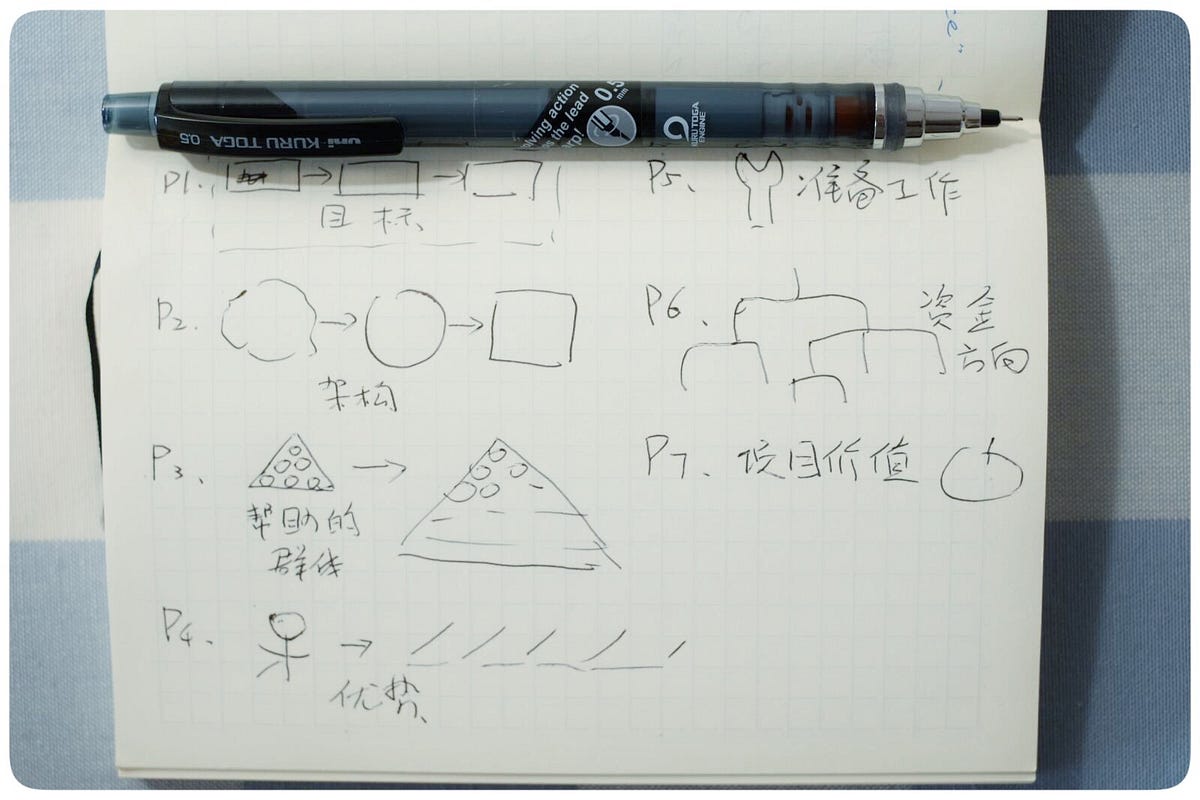 ce"
uni KURU TOGA 0.5
olving action
s the lead
rp!
0.5
mm
KURU TOGA
ENGINE
P1.
目标
P2.
架构
P3、
帮助的
群体
P4、
优势
P5、
准备工作
P6、
资金
方向
P7、项目价值